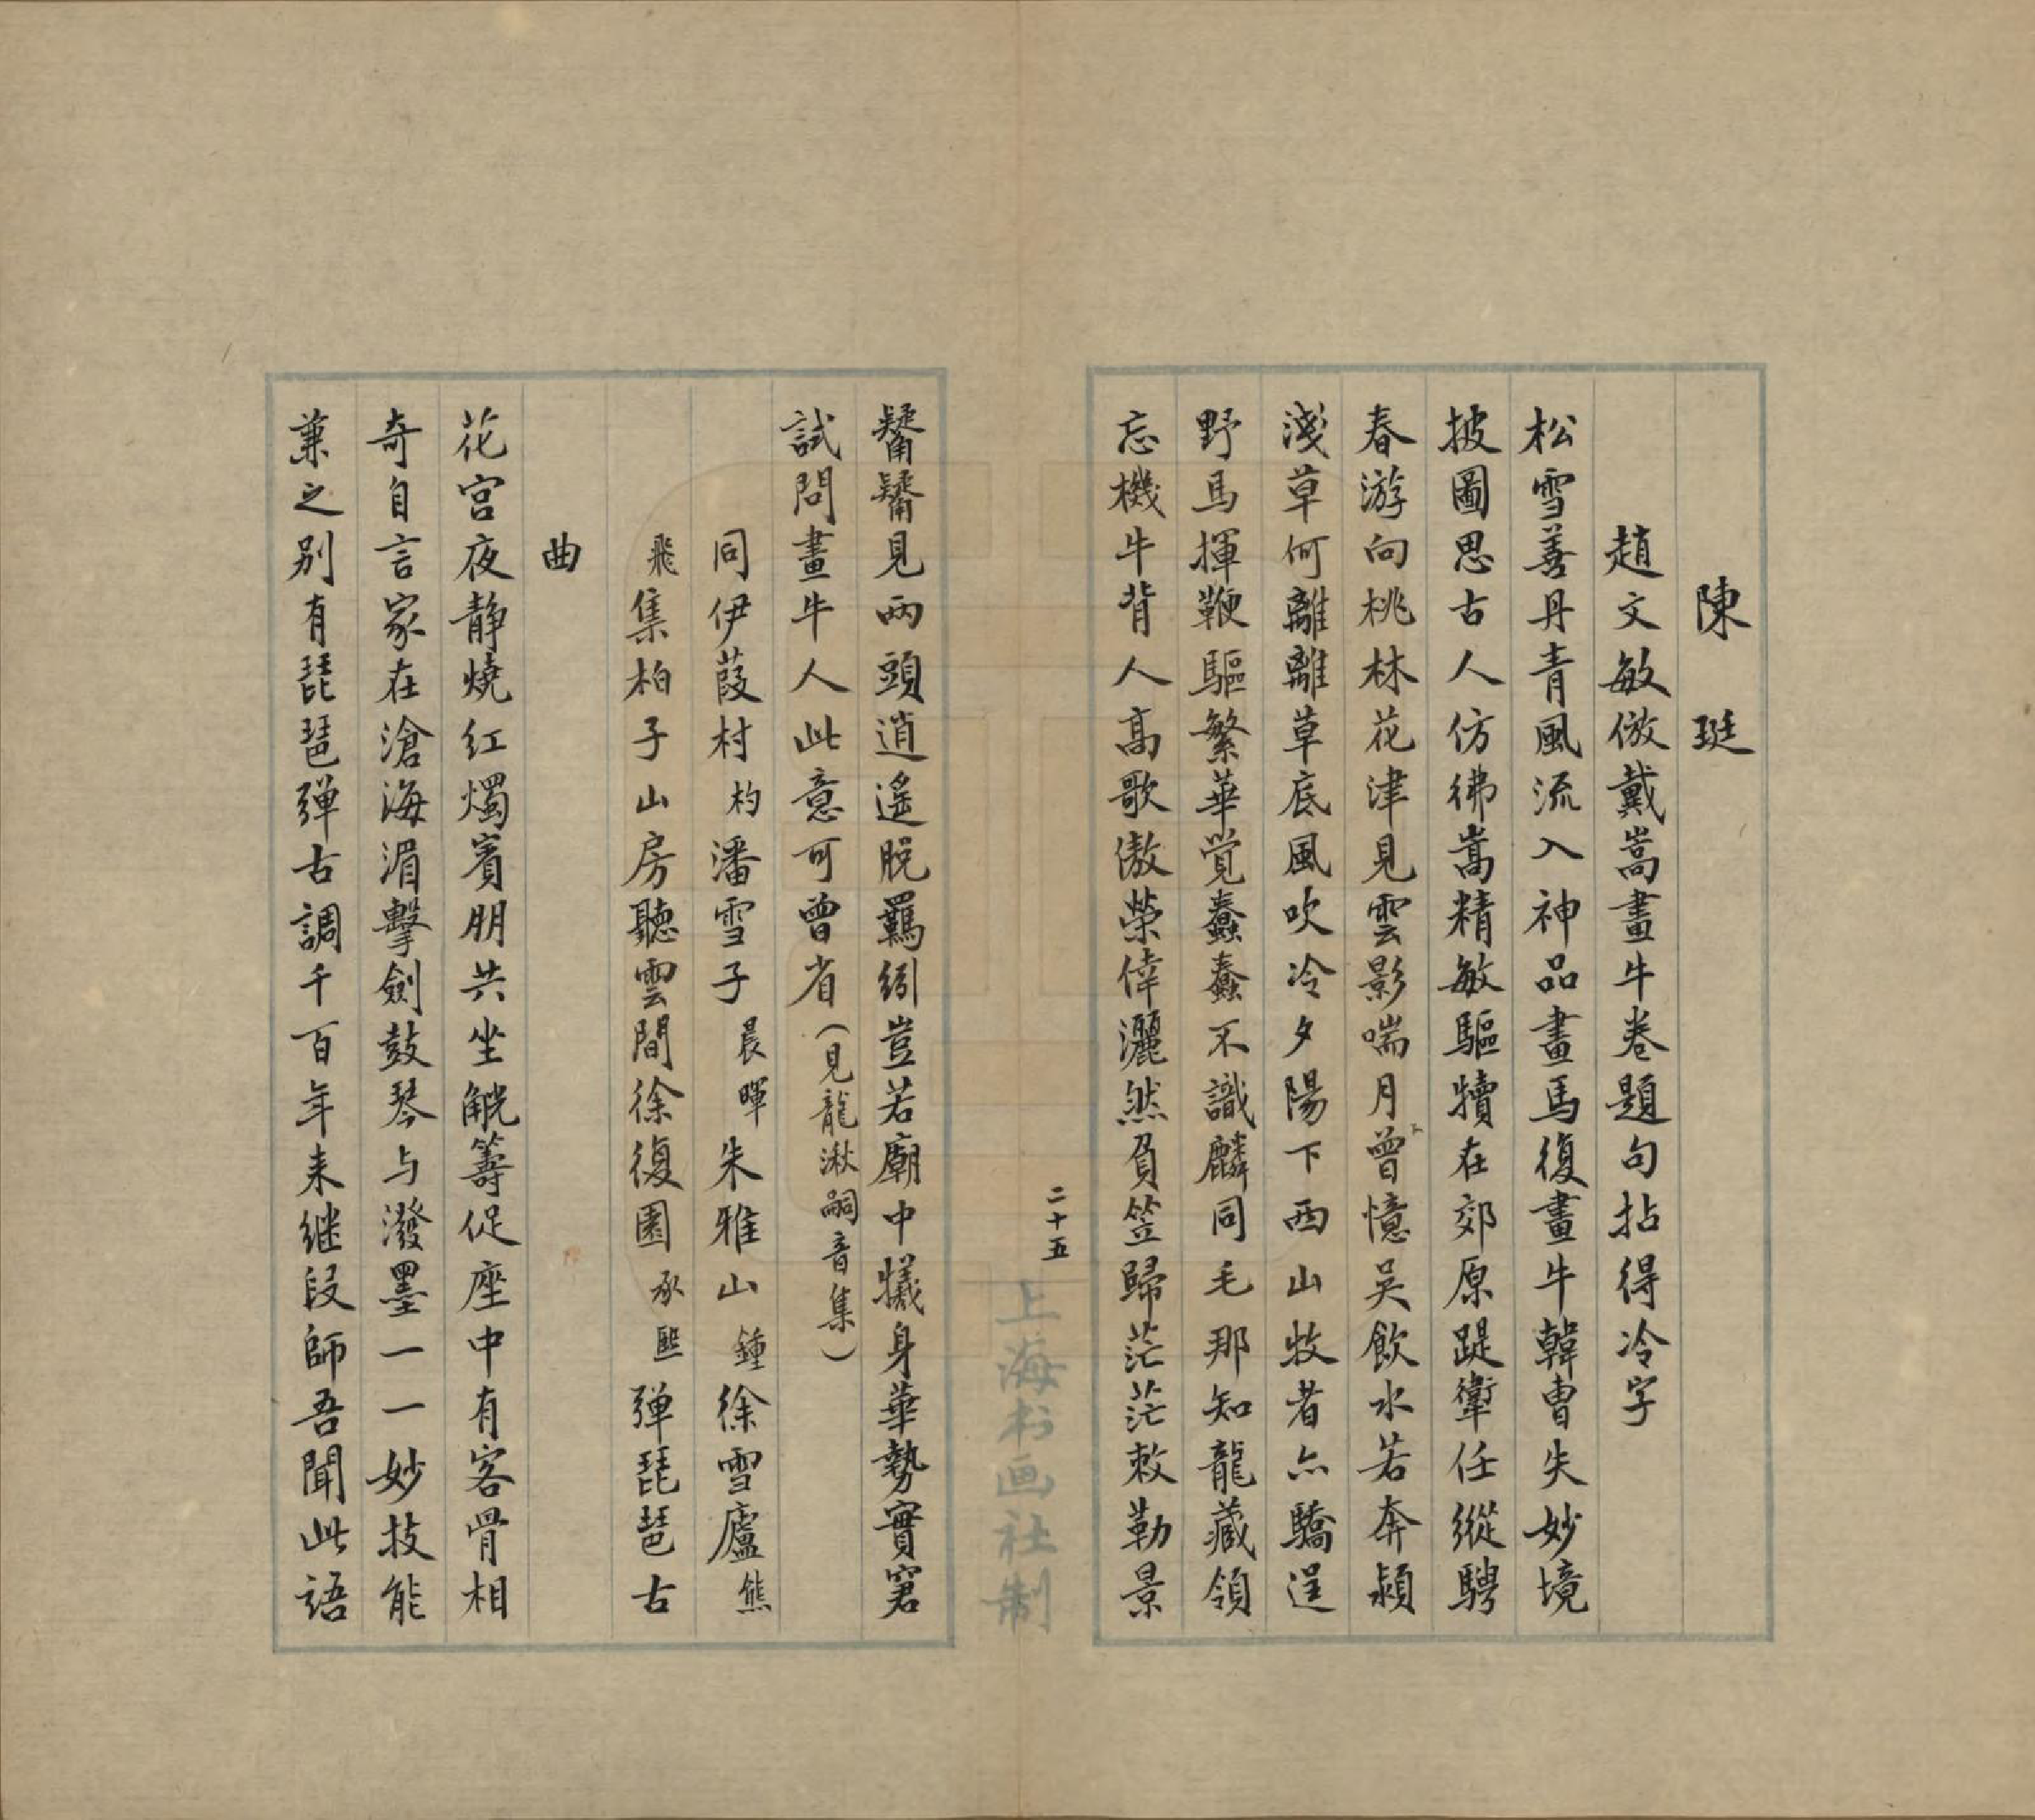 陳珽
趙文敏倣戴嵩畫牛卷題句拈得冷字
松雪善丹青風流入神品畫馬復畫牛韓曹失妙境
披圖思古人仿彿嵩精敏驅犢在郊原踶𨎥任縱騁
春游向桃林花津見雲影喘月曾憶吳飲水若奔潁
淺草何離離草底風吹冷夕陽下西山牧者亦驕逞
野馬揮鞭驅繁華覺蠢蠢不識麟同毛那知龍藏領
忘機牛背人高歌傲榮倖灑然負笠歸茫茫敕勒景
二十五
上海书画社制
觺觺見兩頭逍遙脫羈紖豈若廟中犧身華勢實窘
試問畫牛人此意可曾省（見龍湫嗣音集）
同伊葭村杓潘雪子晨暉朱雅山鍾徐雪廬熊
飛集柏子山房聽雲間徐復園承熙弹琵琶古
曲
花宮夜静燒红燭賓朋共坐觥籌促座中有客骨相
奇自言家在滄海湄擊劍鼓琴与潑墨一一妙技能
兼之别有琵琶弹古調千百年来继段師吾聞此語